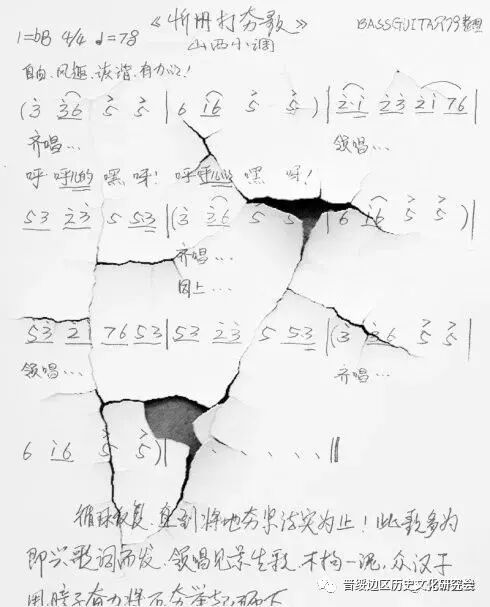 《忻州打夯歌》
1=bB 4/4 ♩=78 山西小调 BASSGUITAR79整理
自由、风趣、诙谐、有力地!
(3 36 5 5 | 6 16 5 5 ) | 2·1 23 21 76 |
齐唱... 领唱...
呼 呼儿的 嘿 呀! 呼 呼儿的 嘿 呀!
53 23 5 53 | (3 36 5 5 | 6 16 5 5 ) |
齐唱...
同上...
53 2 76 53 | 53 23 5 53 | (3 36 5 5 |
领唱... 齐唱...
6 16 5 5 ) | 、、、、、 ‖
循环反复,直到将地夯坚法实为止!此歌多为
即兴歌词而发,领唱见景生歌,不拘一泥,众汉子
用膀子奋力将石夯举起而下
晋绥边区历史文化研究会